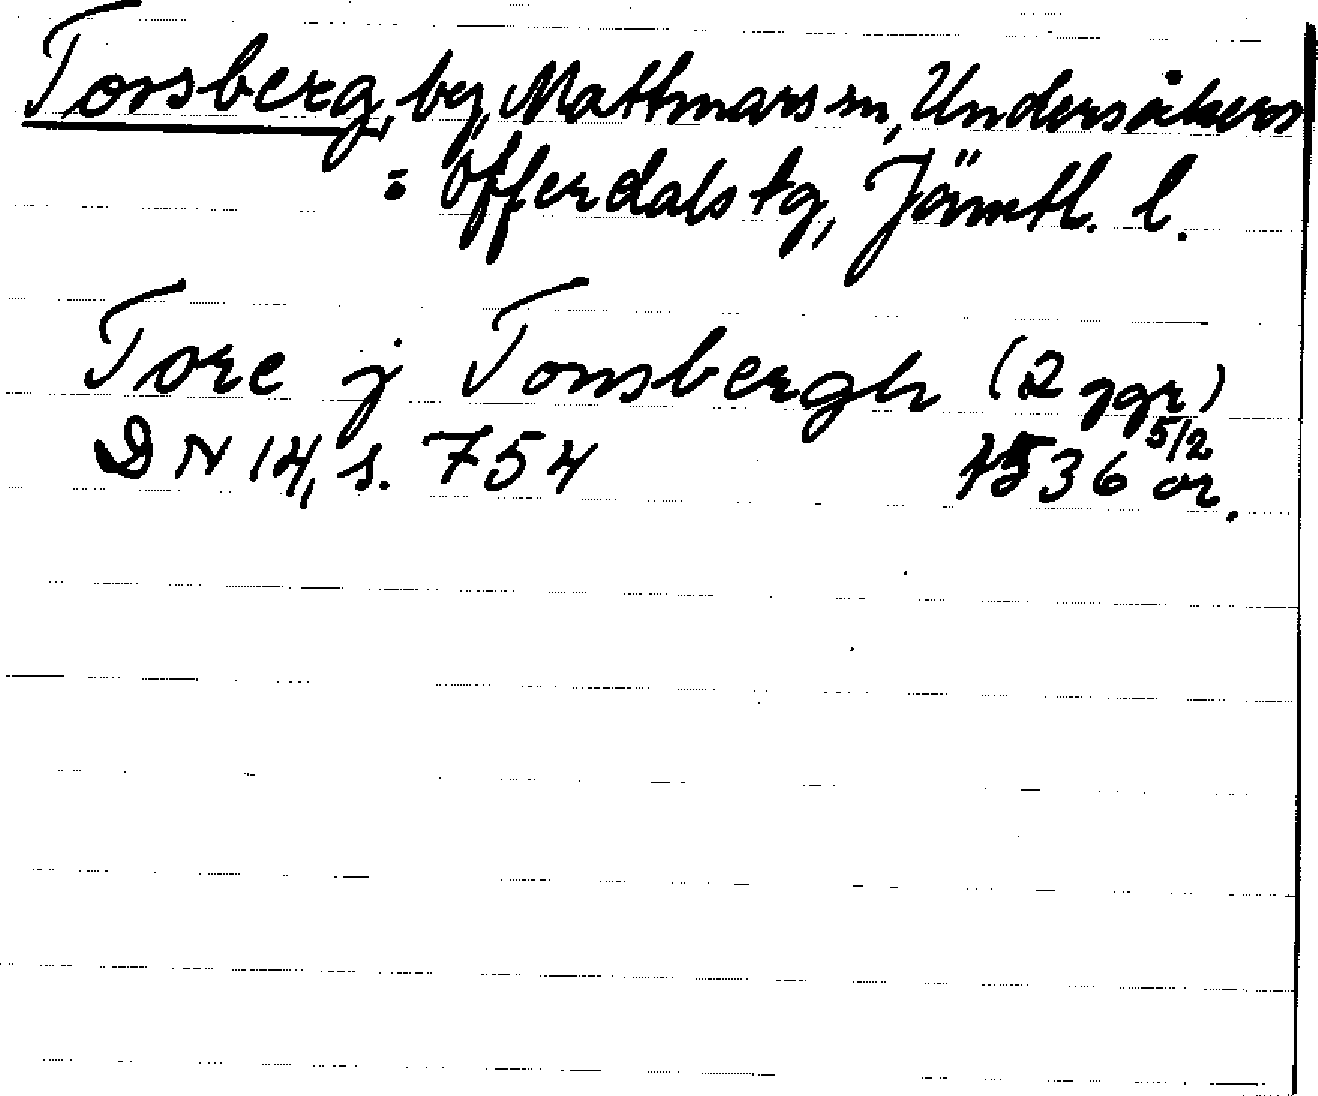 Torsberg, by, Mattmars sn, Undersåkers
= Offerdals tg, Jämtl. l.
Tore j Torsbergh (2 ggr)
DN 14, s. 754 1536 5/2 or.